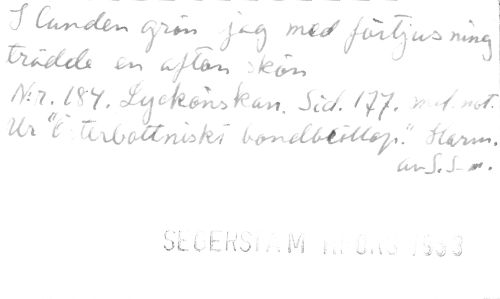 I lunden grön jag med förtjusning
trädde en afton skön
N:r. 184. Lyckönskan. Sid. 177. med not.
Ur "Österbottniskt bondbröllop." Harm.
av S. S-m.
SEGERSTAM